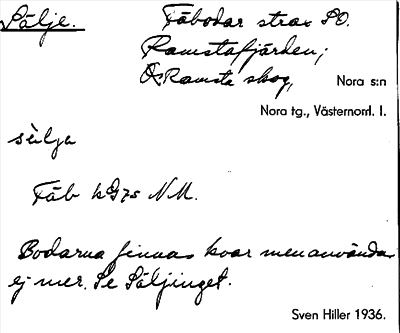 Sälje. Fäbodar strax SO.
Ramstafjärden;
Ö. Ramsta skog, Nora s:n
Nora tg., Västernorrl. l.
sèlja
Fäb k G75 NM.
Bodarna finnas kvar men användas
ej mer. Se Säljinget.
Sven Hiller 1936.